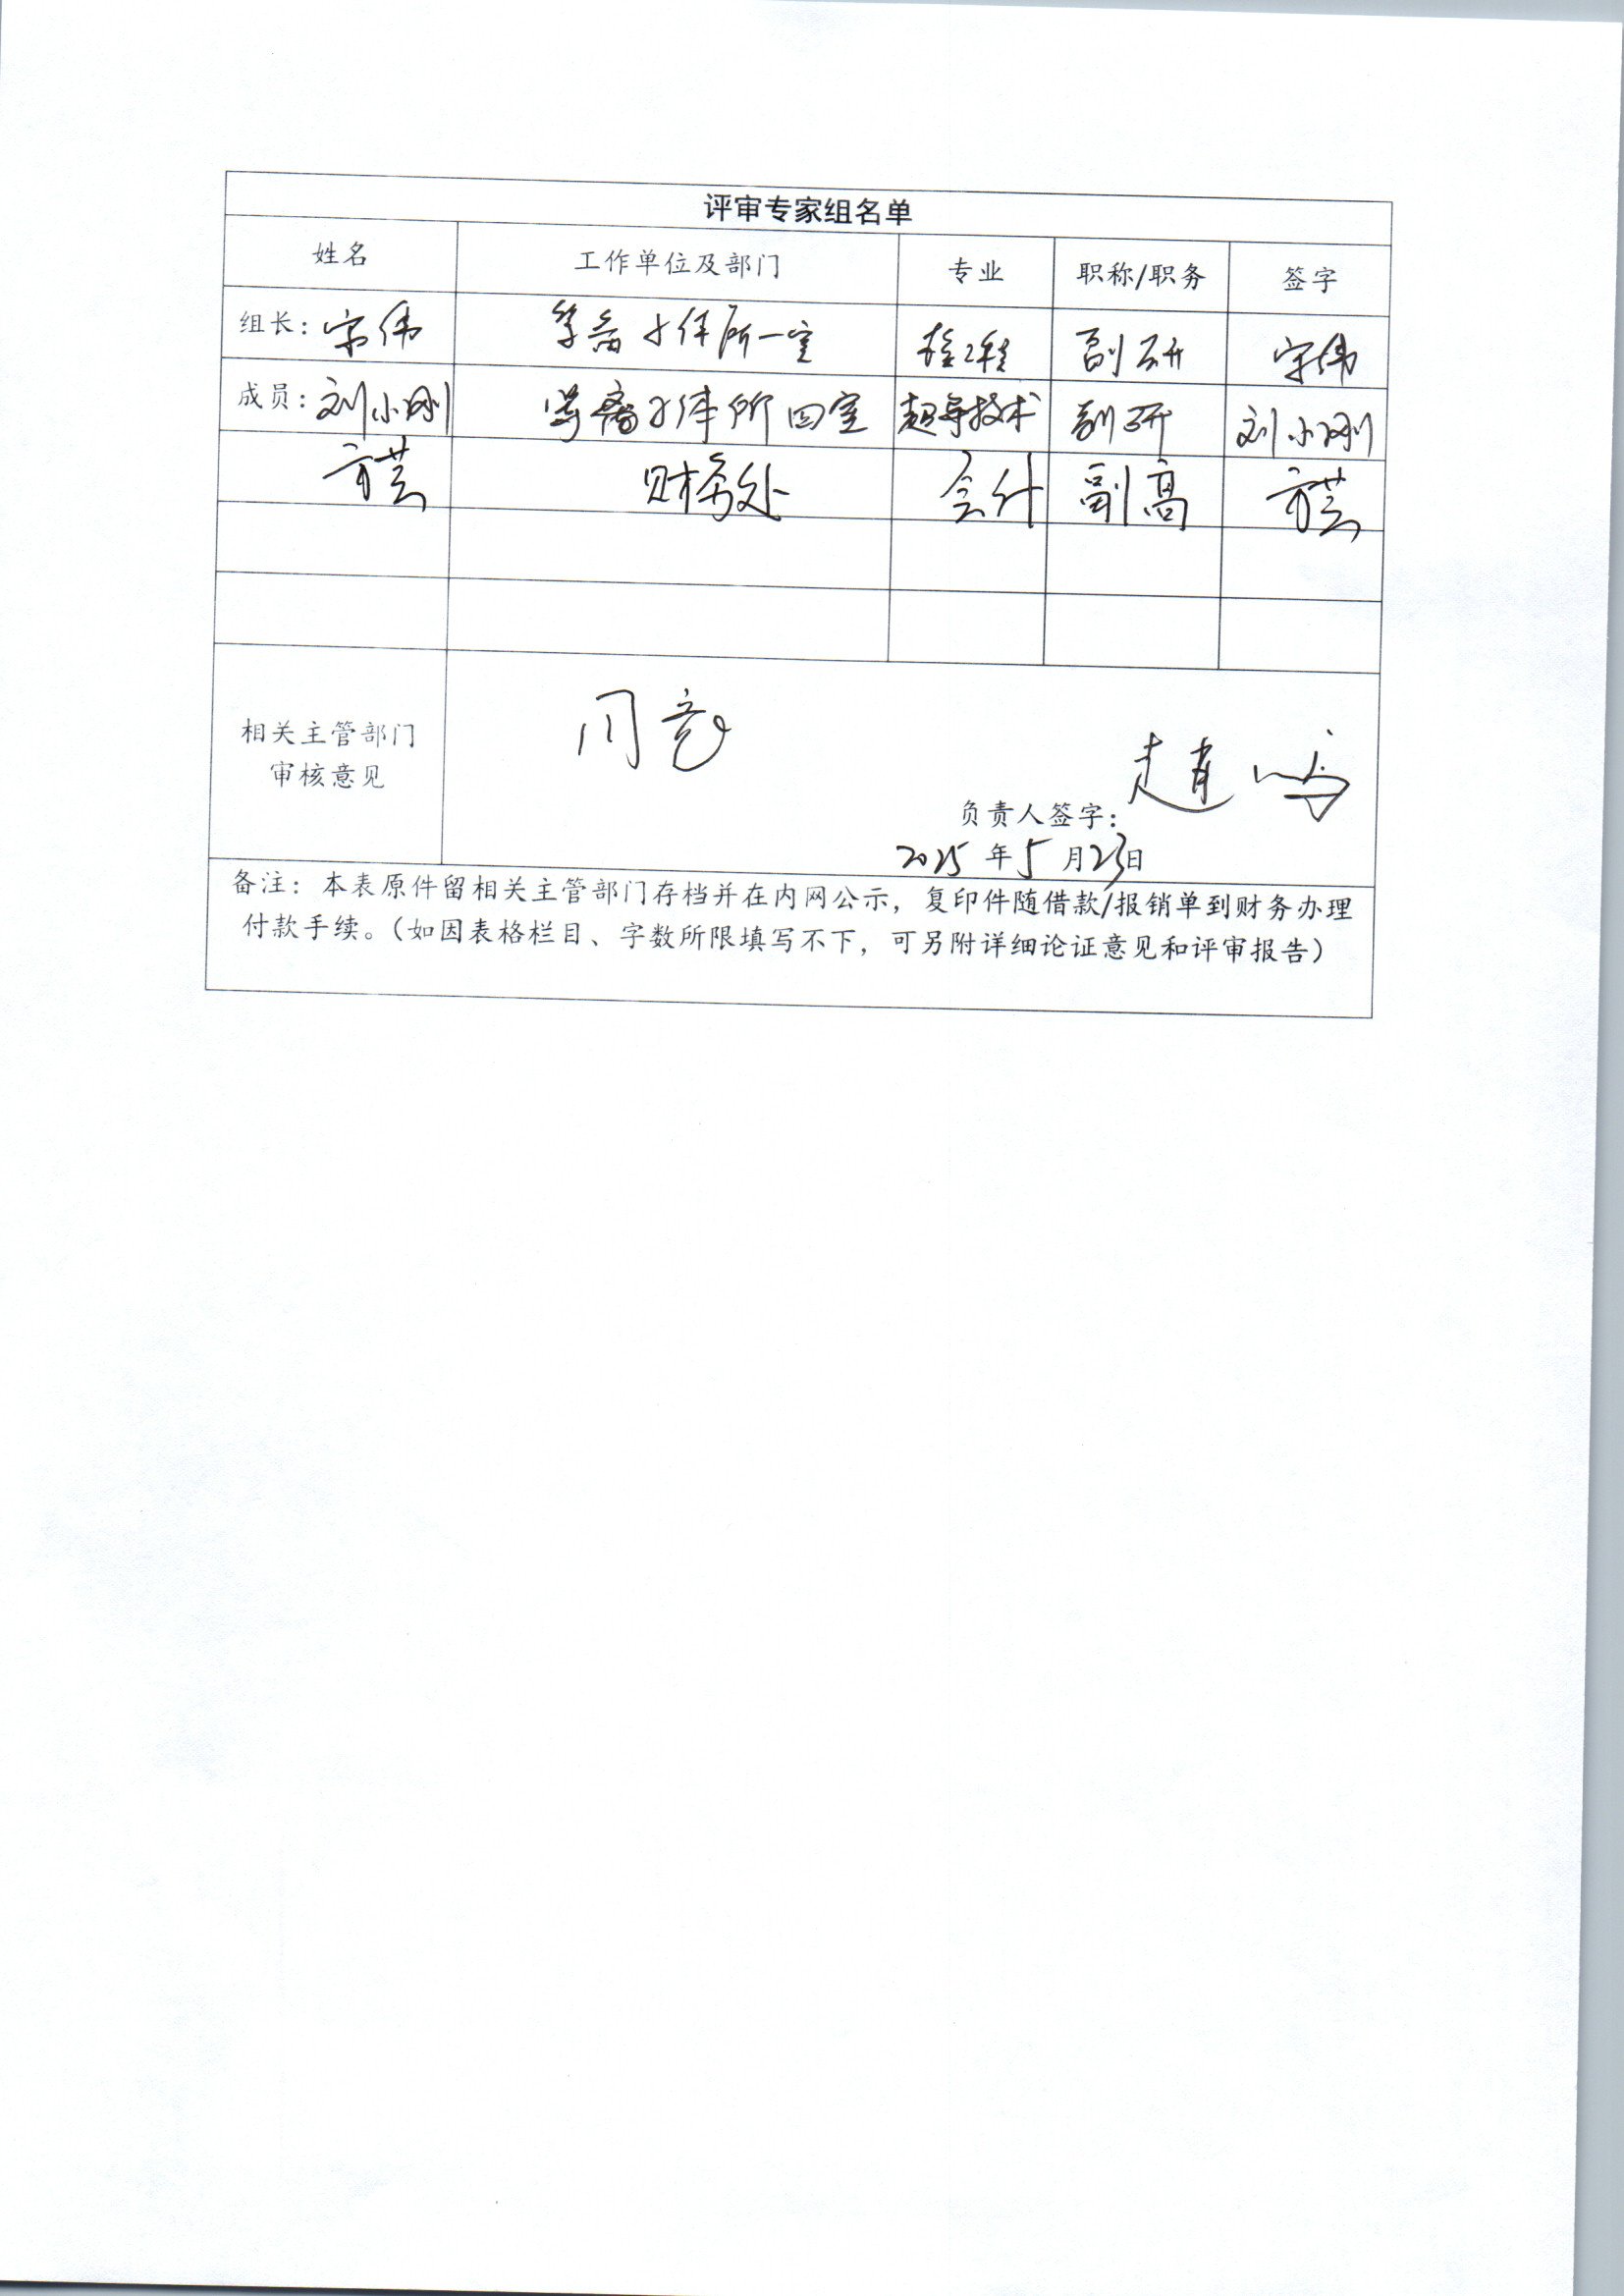 评审专家组名单
姓名 工作单位及部门 专业 职称/职务 签字
组长：宋伟 等离子体所一室 副研 宋伟
成员：刘小刚 等离子体所四室 超导技术 副研 刘小刚
方芸 财务处 会计 副高 方芸
相关主管部门
审核意见
同意
负责人签字：
2025年5月23日
备注：本表原件留相关主管部门存档并在内网公示，复印件随借款/报销单到财务办理
付款手续。（如因表格栏目、字数所限填写不下，可另附详细论证意见和评审报告）